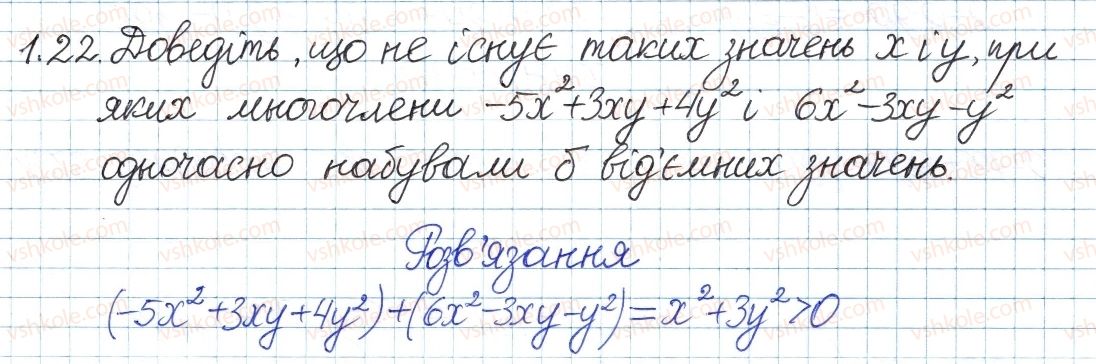 1.22. Доведіть, що не існує таких значень x і y, при
яких многочлени -5x²+3xy+4y² і 6x²-3xy-y²
одночасно набували б від'ємних значень.
Розв'язання
(-5x²+3xy+4y²)+(6x²-3xy-y²)=x²+3y²>0